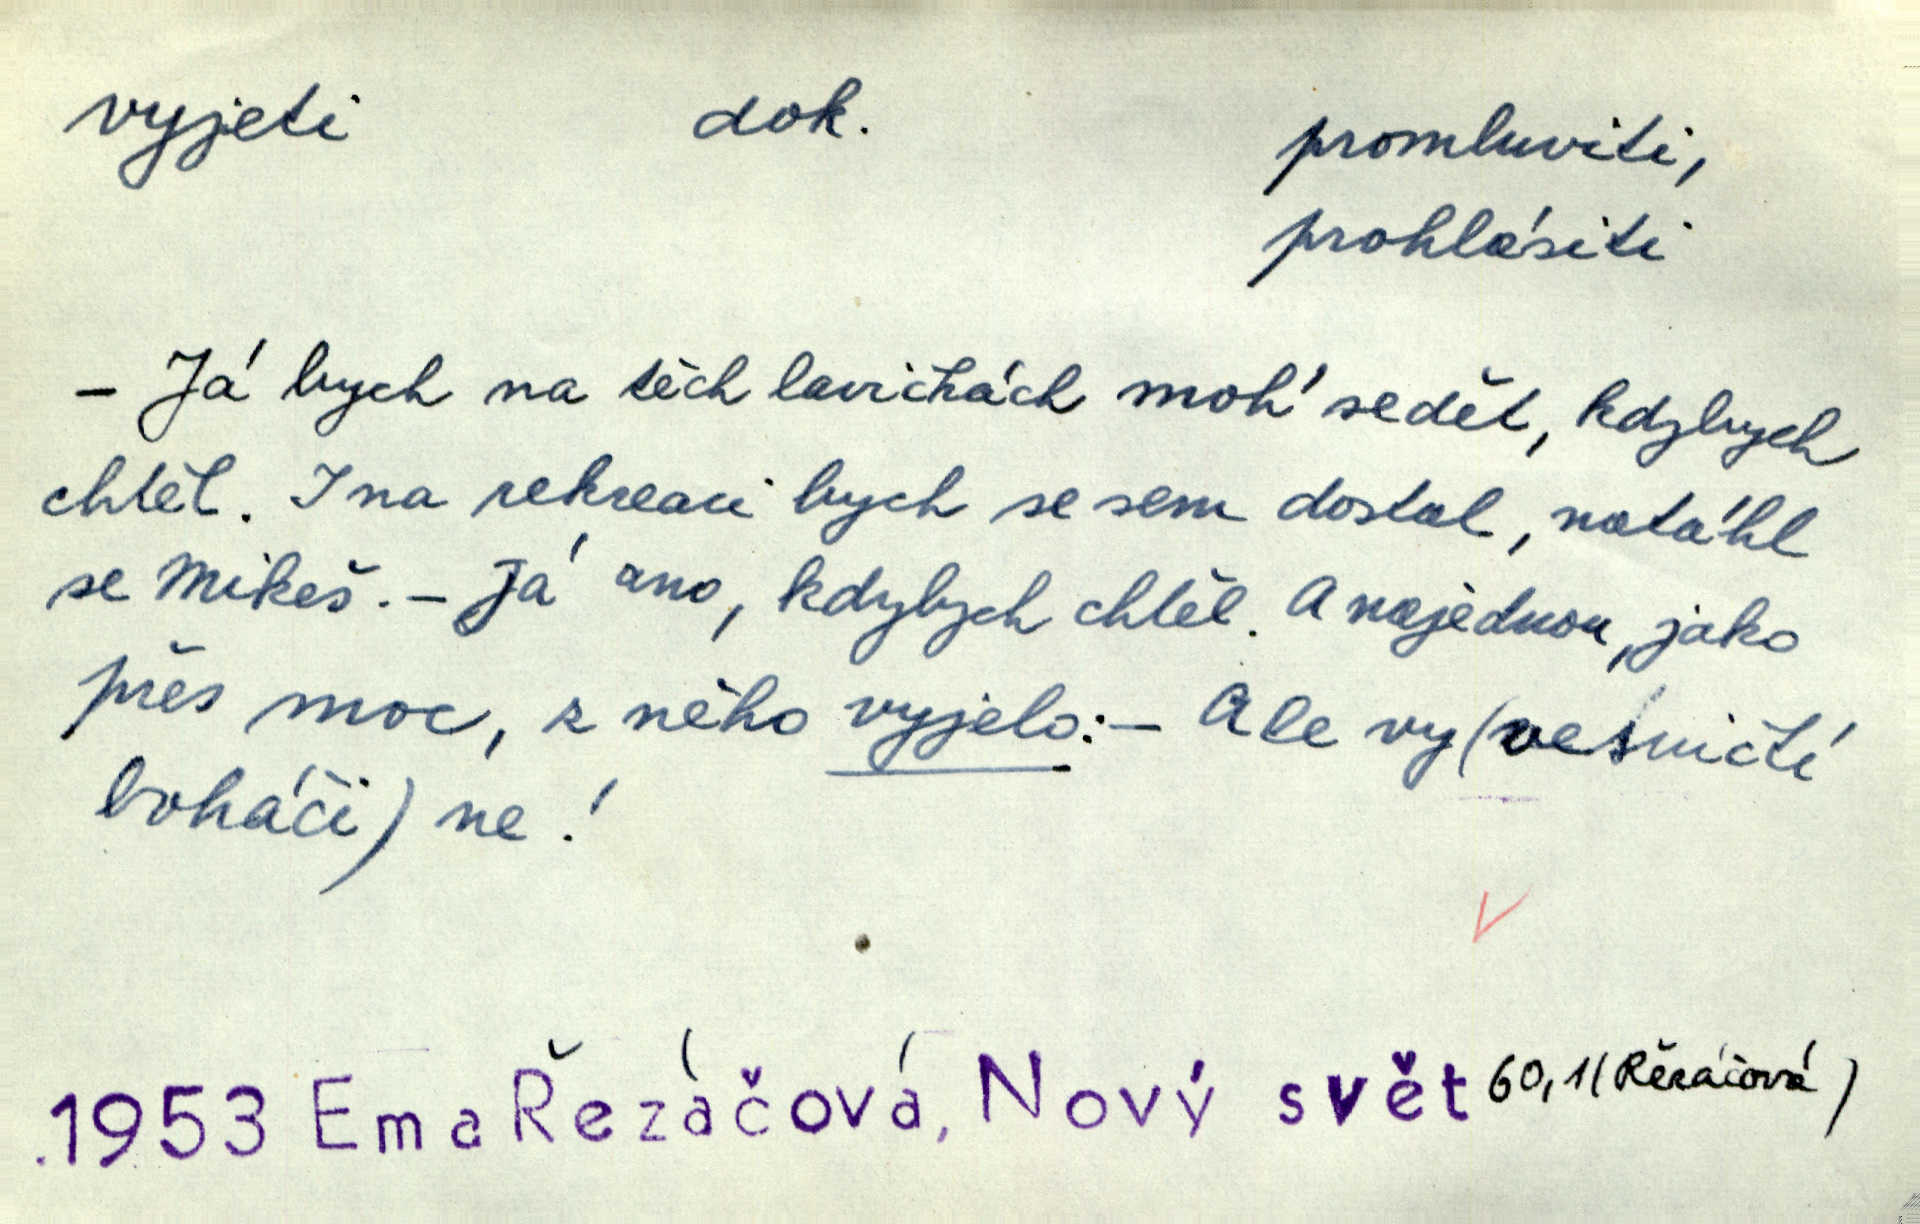 vyjeti dok. promluviti,
prohlásiti
– Já bych na těch lavičkách moh' sedět, kdybych
chtěl. I na rekreaci bych se sem dostal, natáhl
se Mikeš. – Já ano, kdybych chtěl. A najednou, jako
přes moc, z něho vyjelo: – Ale vy (vesničtí
boháči) ne!
V
1953 Ema Řezáčová, Nový svět 60,1 (Řezáčová)